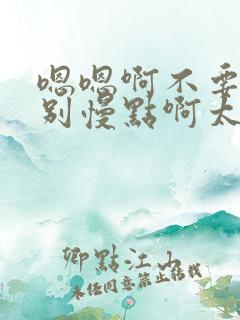 嗯嗯啊不要
别慢點啊太
卿點江山
未经同意禁止转载